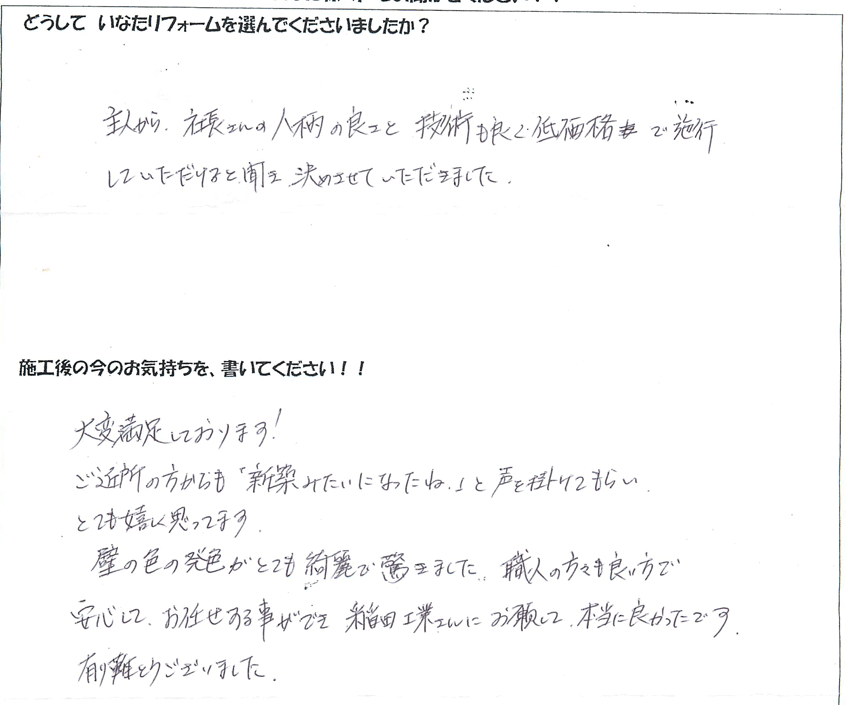 どうして いなたリフォームを選んでくださいましたか？
主人から、社長さんの人柄の良さと 技術も良く低価格で施行
していただけると聞き 決めさせていただきました。
施工後の今のお気持ちを、書いてください！！
大変満足しております！
ご近所の方からも「新築みたいになったね。」と声を掛けてもらい、
とても嬉しく思ってます。
壁の色の発色がとても綺麗で驚きました。職人の方々も良い方で
安心して、お任せする事ができ 稲田工業さんにお願して、本当に良かったです。
有り難とうございました。